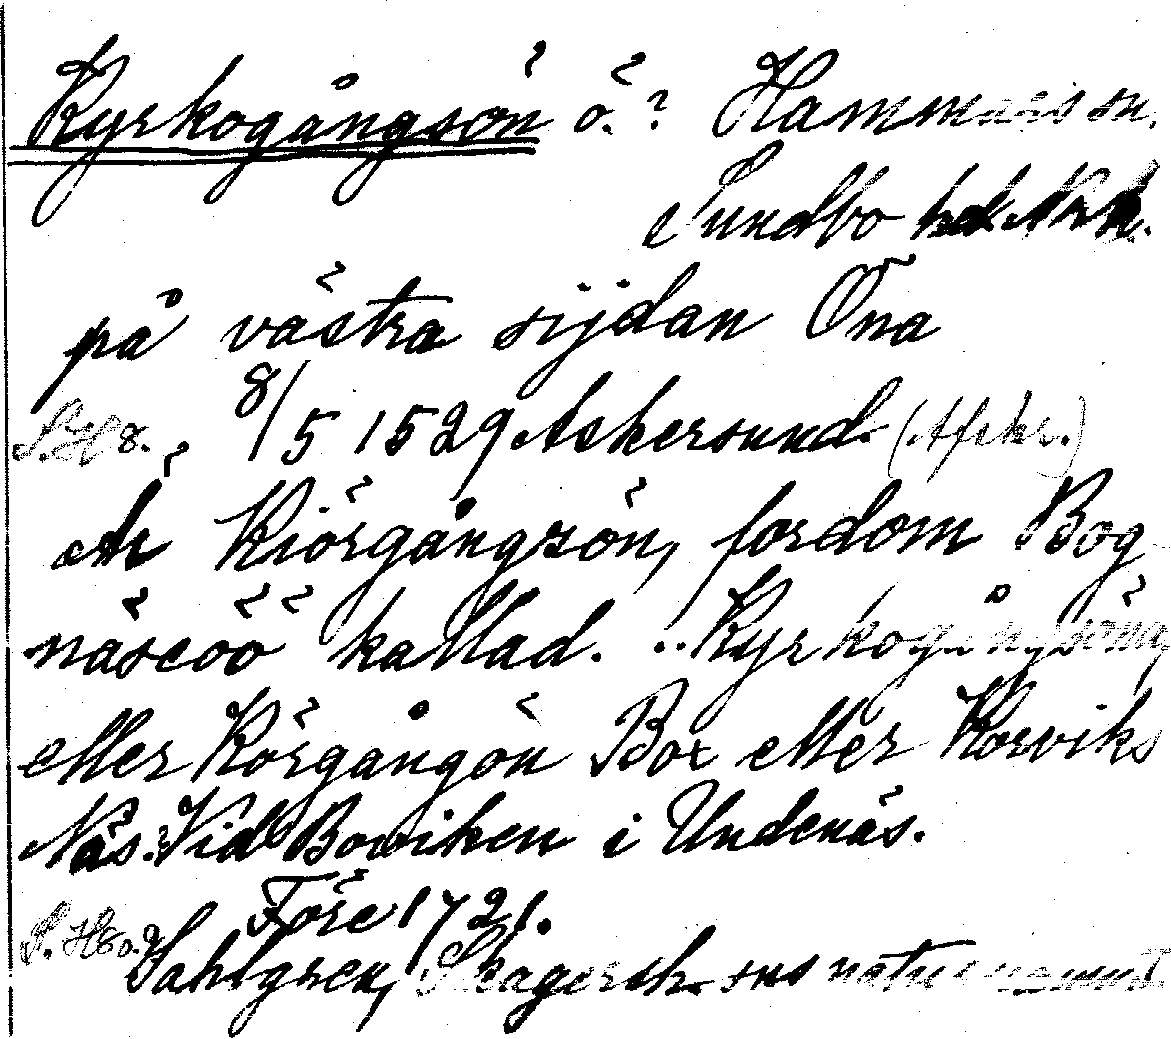 Kyrkogångsön ö.? Hammars sn.
Sundbo hd. Nrk.
på västra sijdan Öna
S.H 8. 8/5 1529 Askersund. (Afskr.)
Kiörgångzön, fordom Bog-
näseöö kallad. .. Kyrkogångsöna
eller Körgångön Box eller Korviks
Näs. Vid Boviken i Undenäs.
Före 1721.
Sahlgren, Skagersh. sns naturnamn